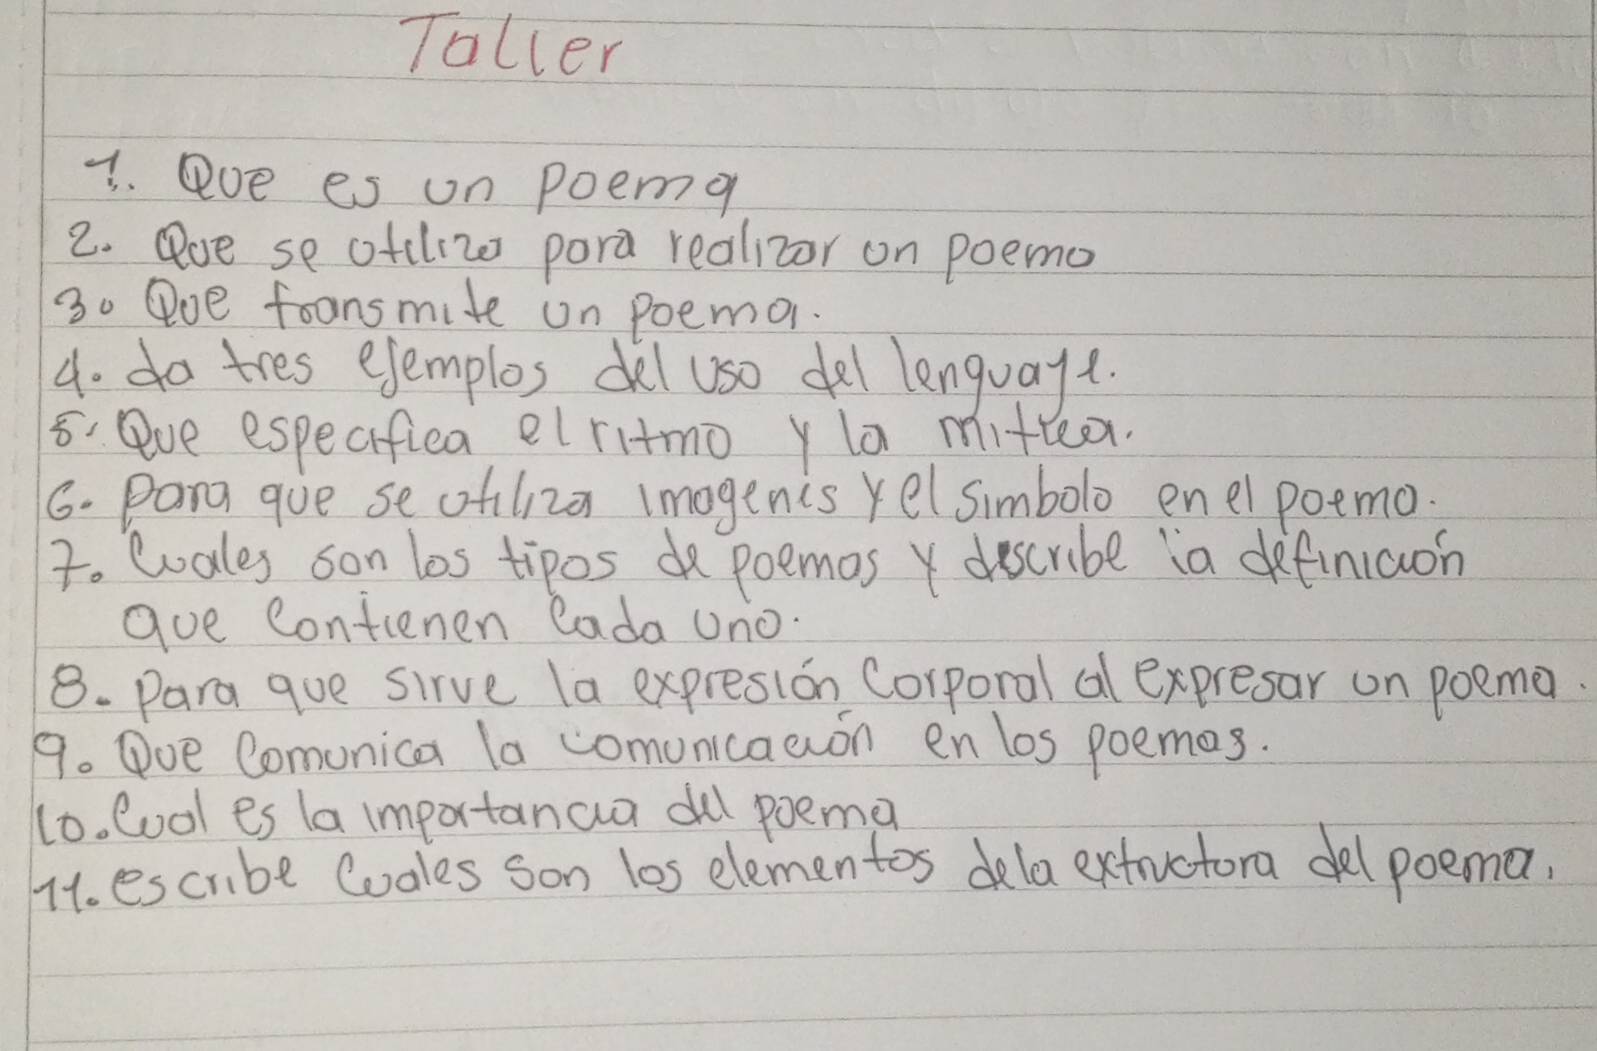 Taller
1. Que es un poema
2. Que se utiliza para realizar un poema
3. Que transmite un poema.
4. da tres ejemplos del uso del lenguaje.
5. Que especifica el ritmo y la mitrea.
6. Para que se utiliza imagenes y el simbolo en el poema.
7. Cuales son los tipos de poemas y describe la definición
que contienen cada uno.
8. Para que sirve la expresión Corporal al expresar un poema.
9. Que Comunica la comunicación en los poemas.
10. Cual es la importancia del poema
11. escribe Cuales son los elementos de la extructura del poema.